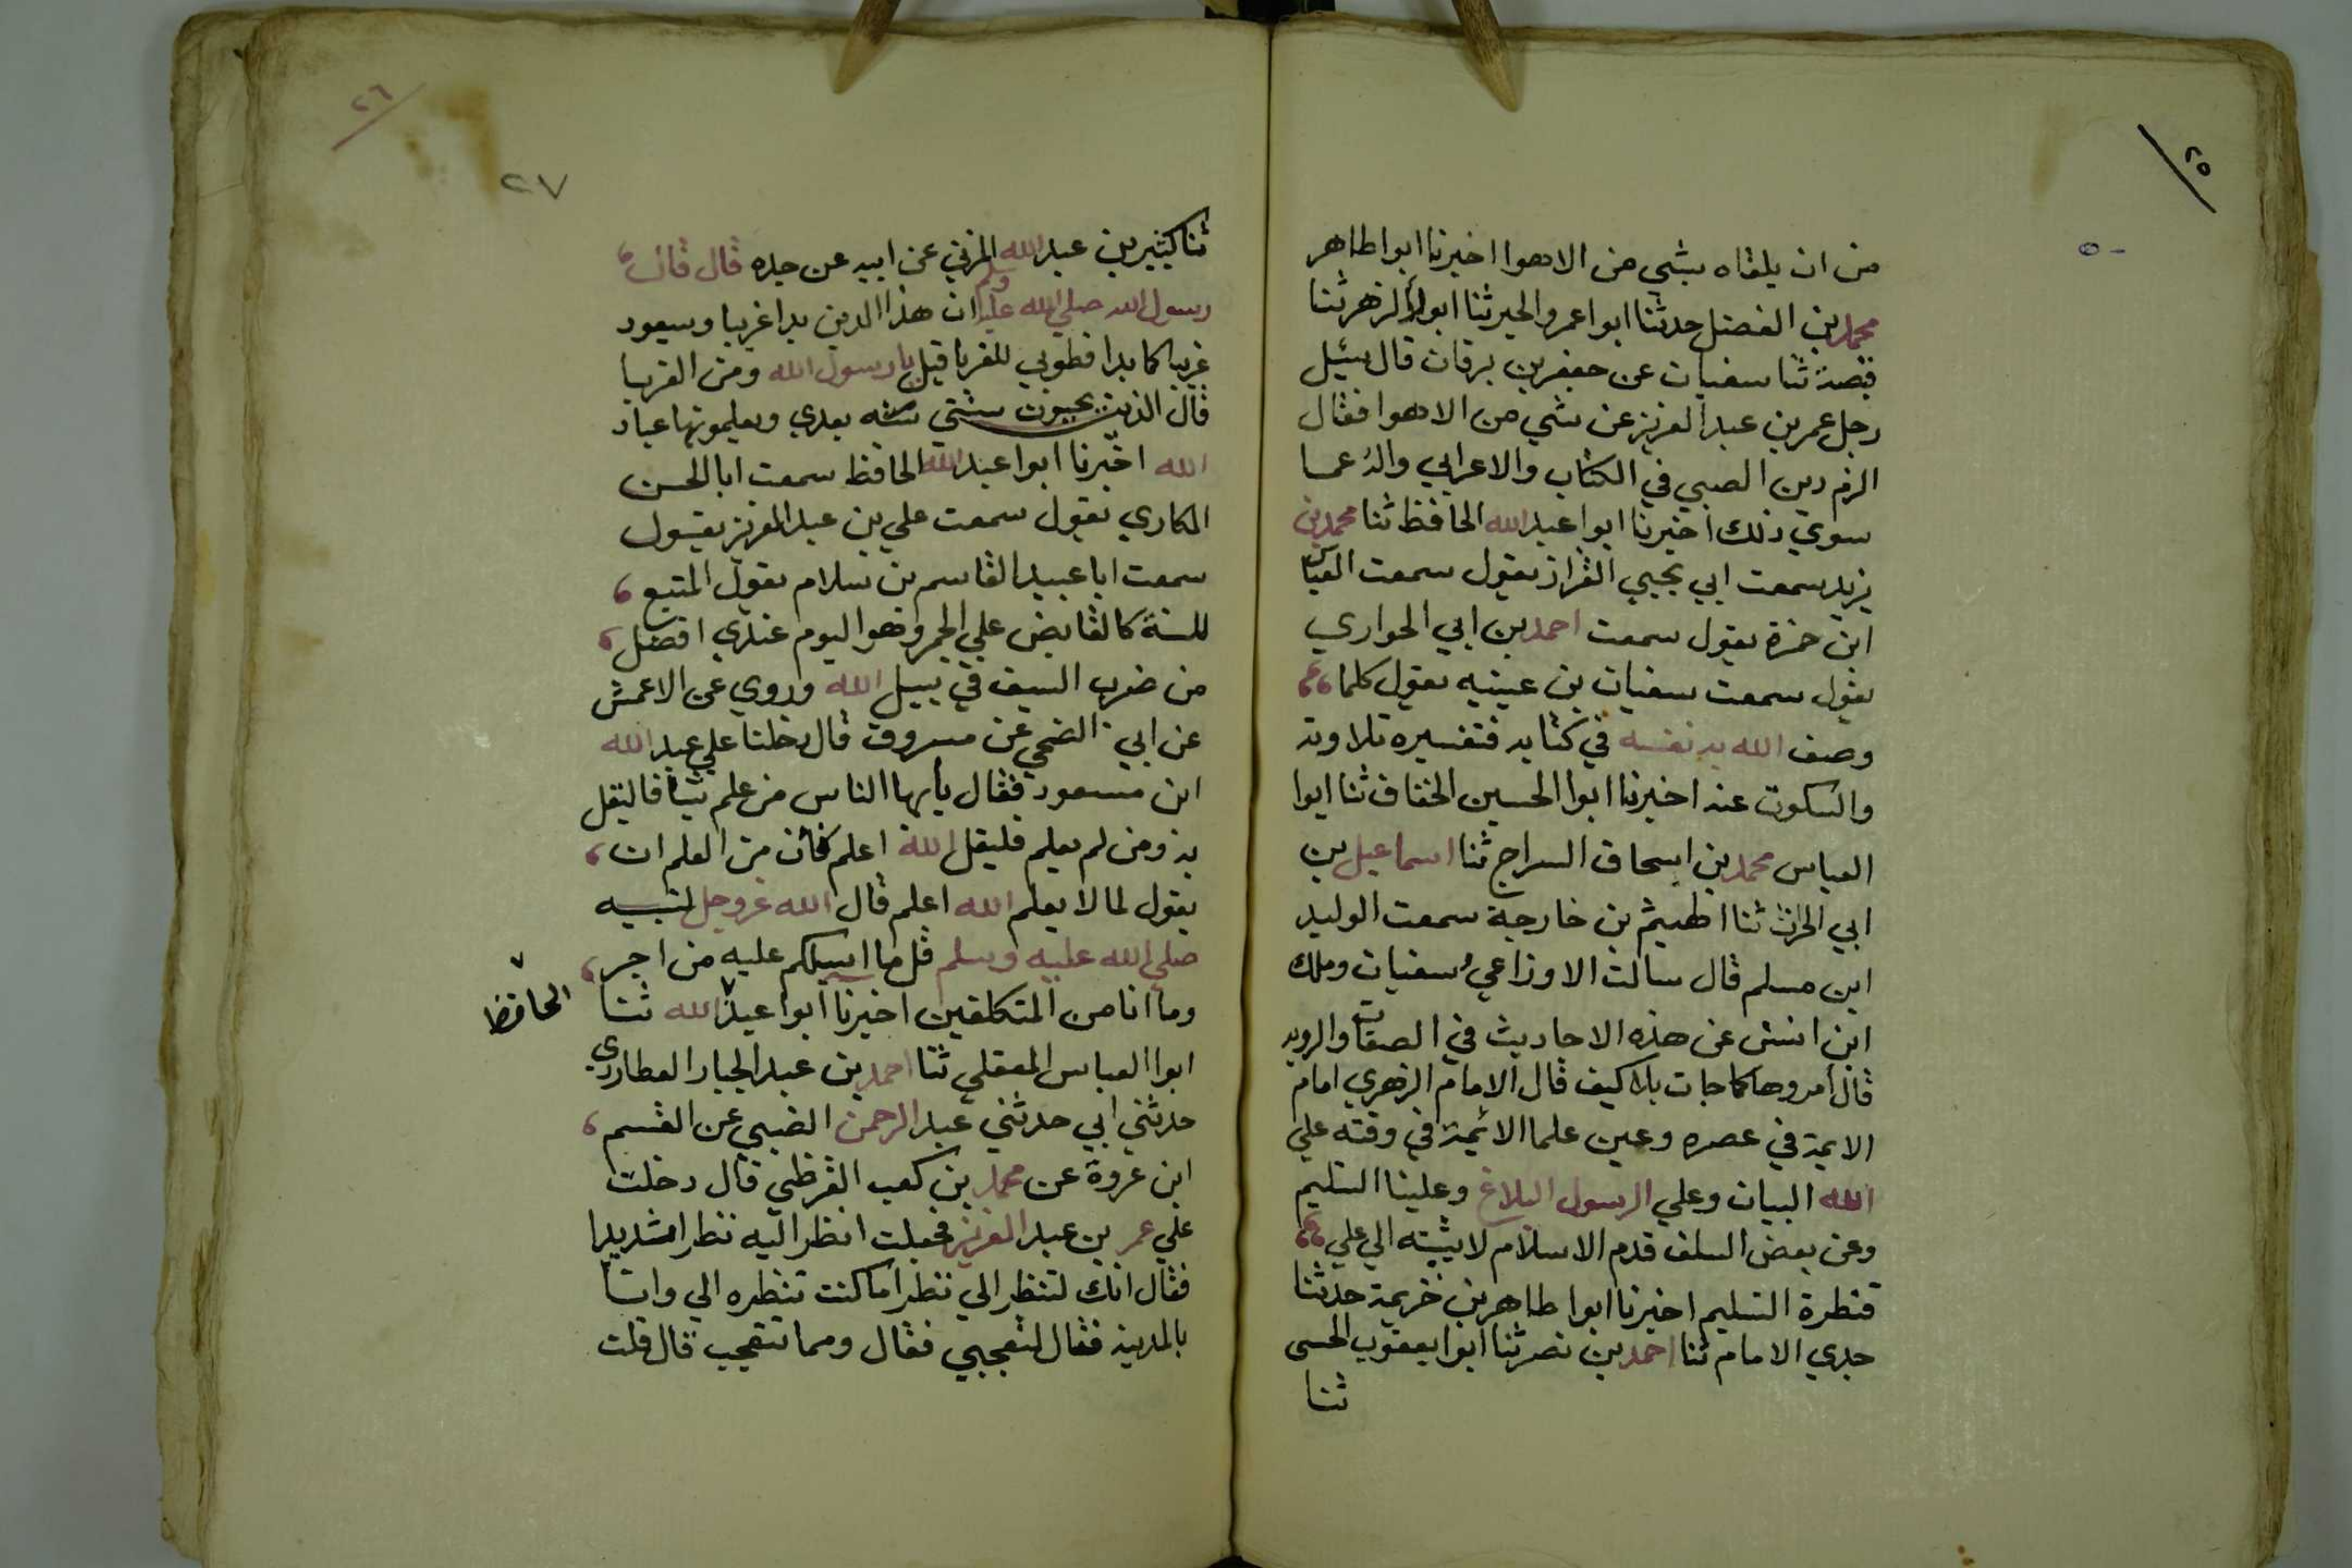 ٢٥
من ان يلقاه بشي من الاهوا اخبرنا ابوا طاهر
محمد بن الفضل حدثنا ابوا عمرو الحيرثنا ابوا الزهرثنا
قبصة ثنا سفيان عن جعفر بن برقان قال سئيل
رجل عمر بن عبد العزيز عن شي من الاهوا فقال
الزم دين الصبي في الكتاب والاعرابي واله عما
سوي ذلك اخبرنا ابوا عبد الله الحافظ ثنا محمد بن
يزيد سمعت ابي يحيي القزاز يقول سمعت العباس
ابن حمزة يقول سمعت احمد بن ابي الحواري
يقول سمعت سفيان بن عينيه يقول كلما
وصف الله به نفسه في كتابه فتفسيره تلاوته
والسكوت عنه اخبرنا ابوا الحسين الخفاف ثنا ابوا
العباس محمد بن اسحاق السراج ثنا اسماعيل بن
ابي الحرث ثنا اطهيثم بن خارجة سمعت الوليد
ابن مسلم قال سالت الاوزاعي وسفيان وملك
ابن انس عن هذه الاحاديث في الصفات والرويه
قال امروها كما جات بلا كيف قال الامام الزهري امام
الايمة في عصره وعين علما الائمة في وقته علي
الله البيان وعلي الرسول البلاغ وعلينا التسليم
وعن بعض السلف قدم الاسلام لا يثبته الي علي
قنطرة التسليم اخبرنا ابوا طاهر بن خزيمة حدثنا
جدي الامام ثنا احمد بن نصر ثنا ابوا يعقوب الحسى
ثنا
٢٦
٢٧
ثنا كثير بن عبد الله المزني عن ابيه عن جده قال قال
رسول الله صلي الله عليه وسلم ان هذا الدين بدا غريبا وسيعود
غريبا كما بدا فطوبي للغربا قيل يا رسول الله ومن الغربا
قال الذين يحيون سنتي سنه بعدي ويعلمونها عباد
الله اخبرنا ابوا عبد الله الحافظ سمعت ابا الحسن
المكاري يقول سمعت علي بن عبد العزيز يقول
سمعت ابا عبيد القاسم بن سلام يقول المتبع
للسنة كالقابض علي الجمر وهو اليوم عندي افضل
من ضرب السيف في سبيل الله وروي عن الاعمش
عن ابي الضحي عن مسروق قال دخلنا علي عبد الله
ابن مسعود فقال يأيها الناس من علم شيأ فاليقل
به ومن لم يعلم فليقل الله اعلم فان من العلم ان
يقول لما لا يعلم الله اعلم قال الله عزوجل لنبيه
صلي الله عليه وسلم قل ما اسيلكم عليه من اجر
وما انا من المتكلفين اخبرنا ابوا عبد الله ثنا
الحافظ
ابوا العباس المعقلي ثنا احمد بن عبد الجبار العطاردي
حدثني ابي حدثني عبد الرحمن الضبي عن القسم
ابن عروة عن محمد بن كعب القرظي قال دخلت
علي عمر بن عبد العزيز فجعلت انظر اليه نظرا مشديدا
فقال انك لتنظر الي نظرا ما كنت تنظره الي وانا
بالمدينه فقال لتعجبي فقال ومما تتعجب قال قلت